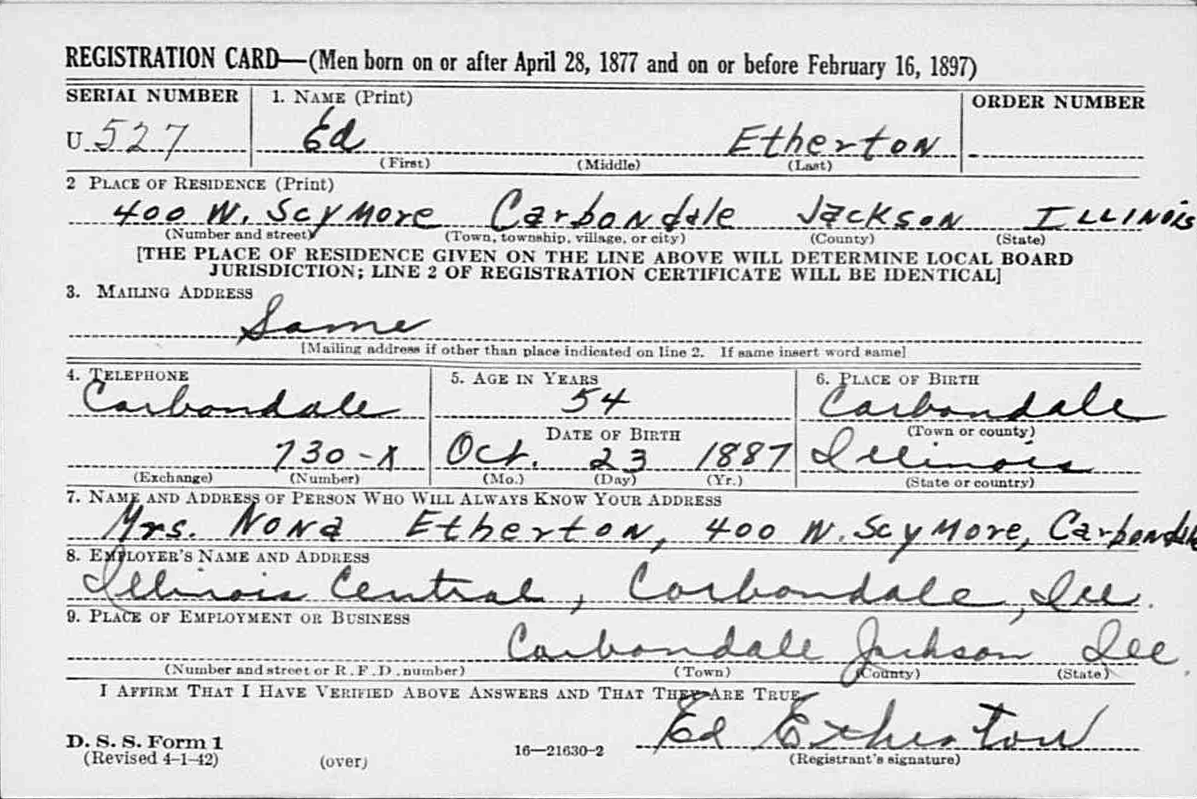 REGISTRATION CARD—(Men born on or after April 28, 1877 and on or before February 16, 1897)
SERIAL NUMBER 1. NAME (Print) ORDER NUMBER
U 527 Ed Etherton
(First) (Middle) (Last)
2 PLACE OF RESIDENCE (Print)
400 W. Scymore Carbondale Jackson ILLINOIS
(Number and street) (Town, township, village, or city) (County) (State)
[THE PLACE OF RESIDENCE GIVEN ON THE LINE ABOVE WILL DETERMINE LOCAL BOARD
JURISDICTION; LINE 2 OF REGISTRATION CERTIFICATE WILL BE IDENTICAL]
3. MAILING ADDRESS
Same
[Mailing address if other than place indicated on line 2. If same insert word same]
4. TELEPHONE 5. AGE IN YEARS 6. PLACE OF BIRTH
Carbondale 54 Carbondale
DATE OF BIRTH (Town or county)
730-X Oct. 23 1887 Illinois
(Exchange) (Number) (Mo.) (Day) (Yr.) (State or country)
7. NAME AND ADDRESS OF PERSON WHO WILL ALWAYS KNOW YOUR ADDRESS
Mrs. Nona Etherton, 400 W. Scymore, Carbondale
8. EMPLOYER'S NAME AND ADDRESS
Illinois Central, Carbondale, Ill.
9. PLACE OF EMPLOYMENT OR BUSINESS
Carbondale Jackson Ill.
(Number and street or R. F. D. number) (Town) (County) (State)
I AFFIRM THAT I HAVE VERIFIED ABOVE ANSWERS AND THAT THEY ARE TRUE.
Ed Etherton
D. S. S. Form 1
(Revised 4-1-42) (over) 16—21630-2 (Registrant's signature)